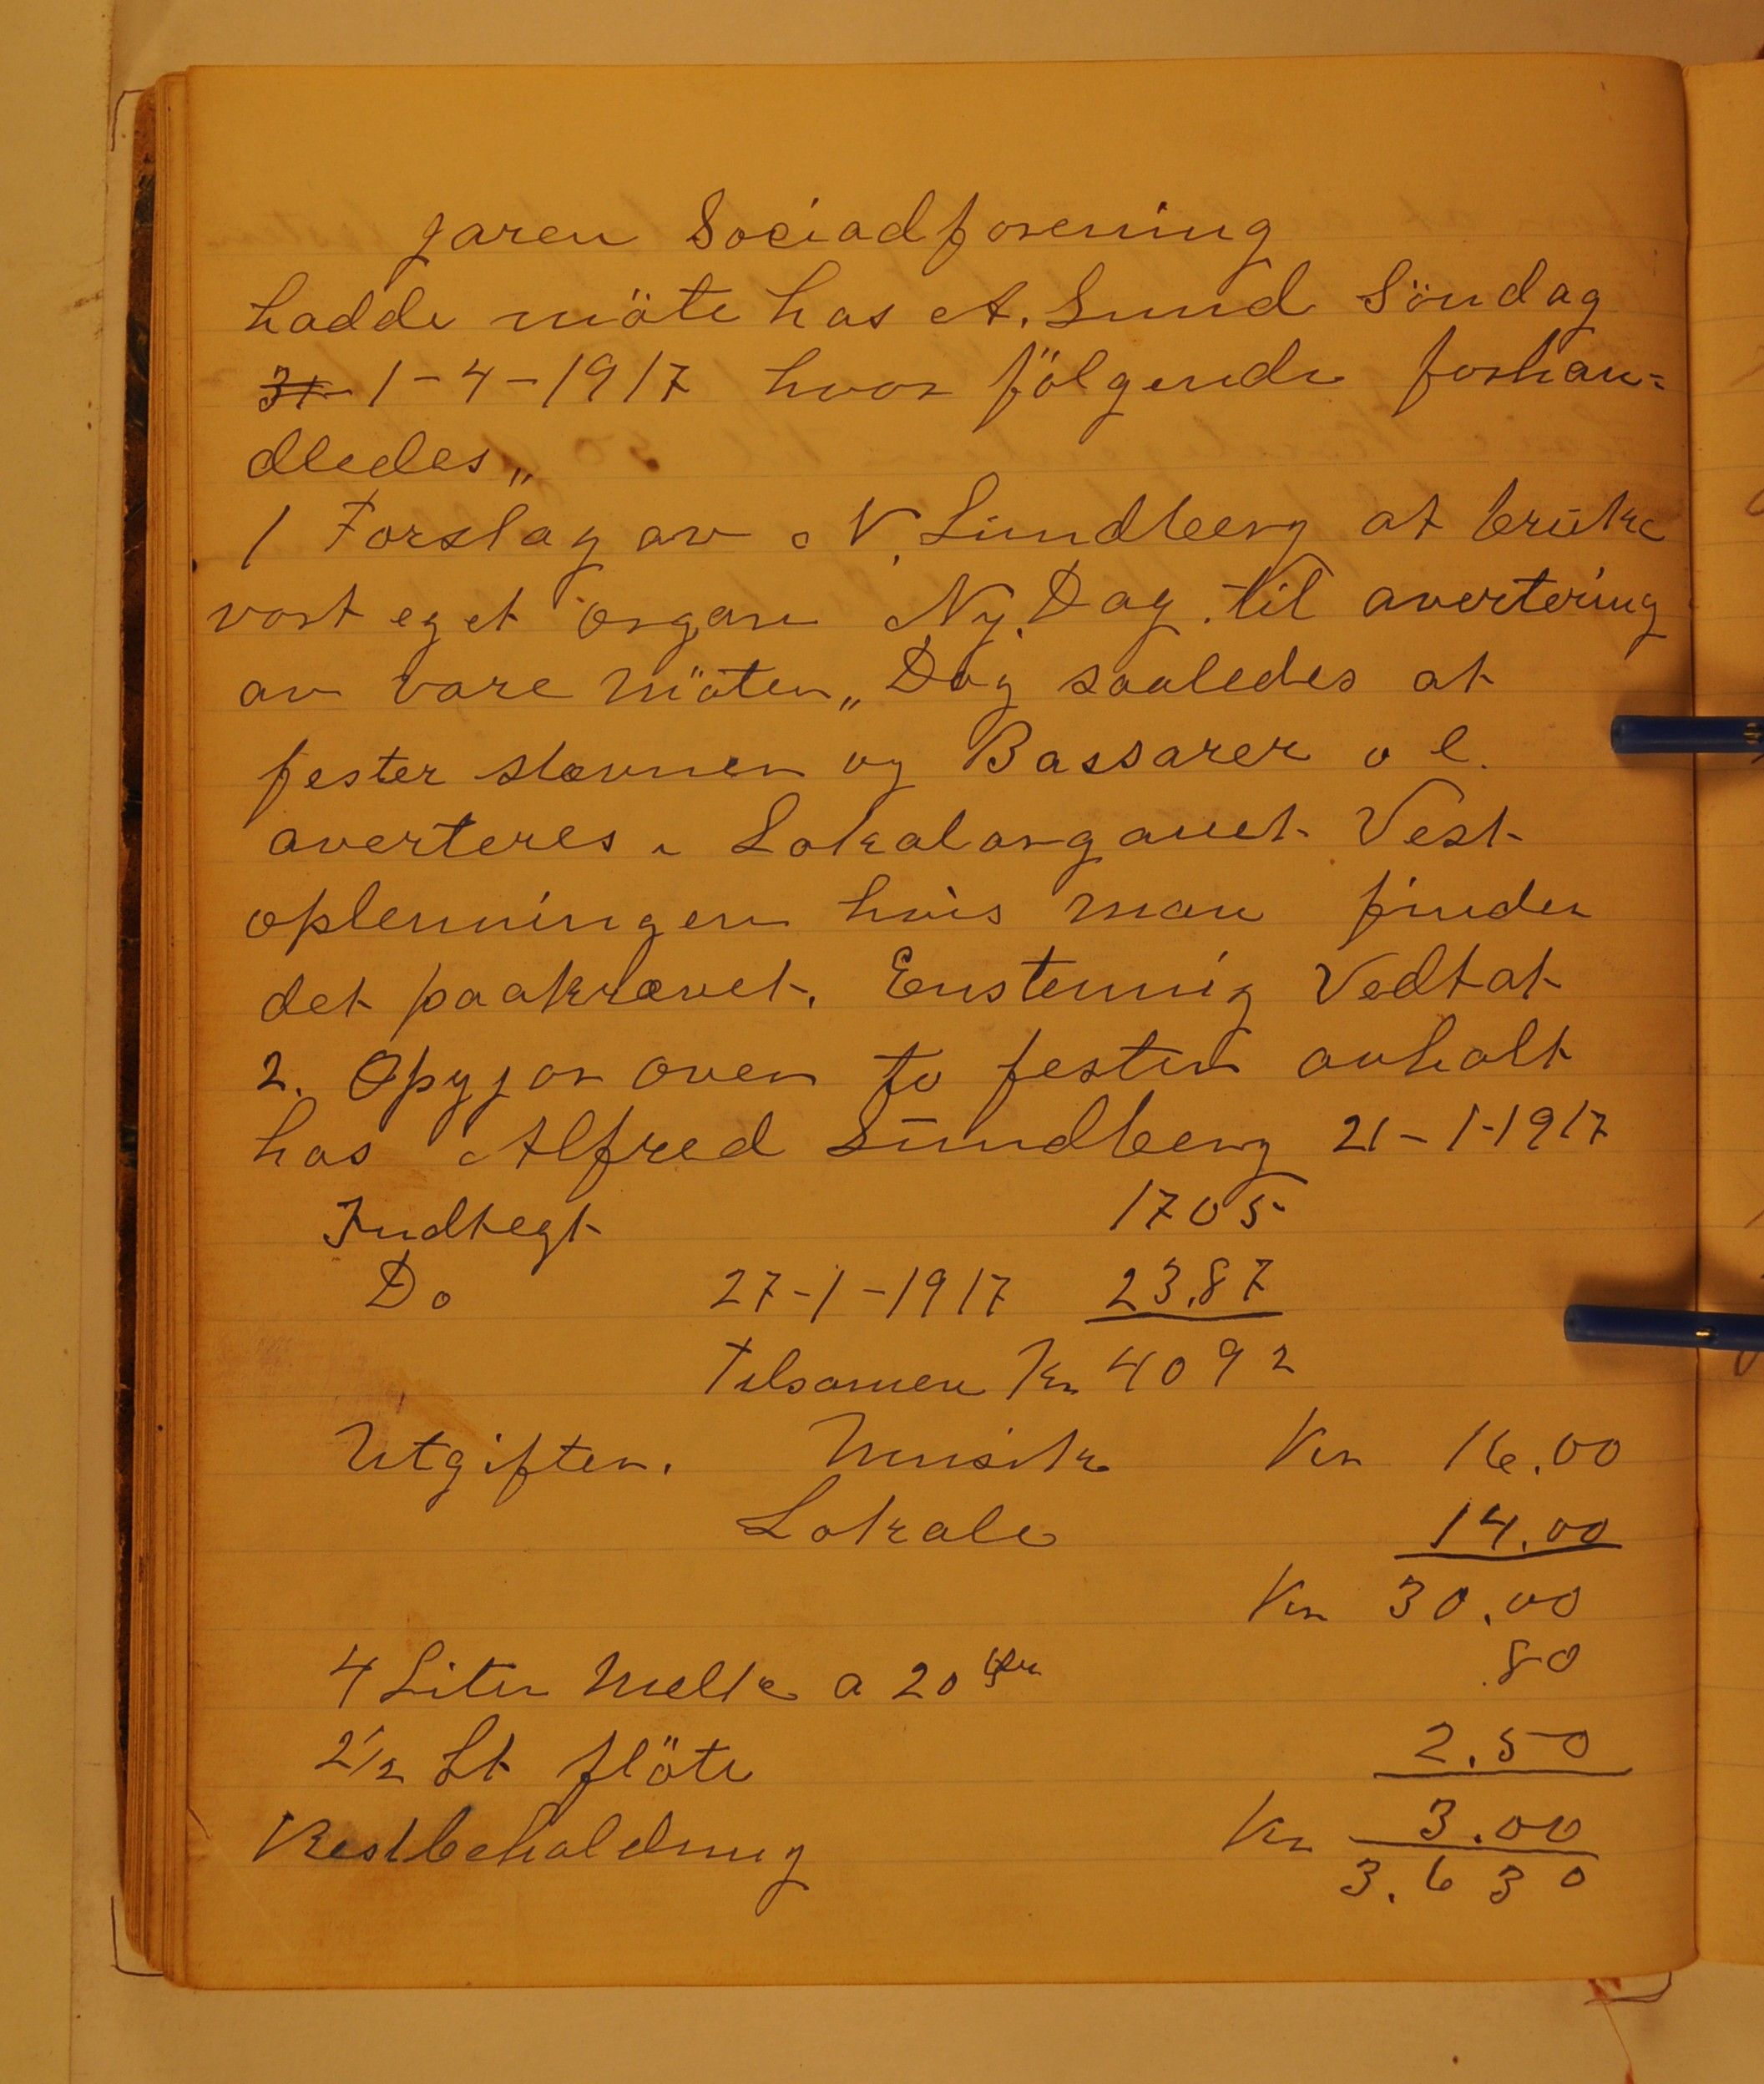 Jaren Sociadforening
hadde möte hos A. Lund Söndag
31 1-4-1917 hvor fölgende forhan=
dledes„
1 Forslag av N. Lundberg at bruke
vort eget organ Ny. Dag. til avertering
av vare möter„ Dog saaledes at
fester stevner og Bassarer o l.
averteres i Lokalorganet Vest
oplenningen hvis man finder
det paakrævet. Enstemig Vedtat
2. Opgjör over to fester avholt
hos Alfred Lundberg 21-1-1917
Indtegt 1705
Do 27-1-1917 23.87
Tilsamen Kr 4092
Utgifter. Musik Kr 16.00
Lokale 14.00
Kr 30.00
4 Liter Melk a 20 Ör .80
2 1/2 Lt flöte 2.50
Restbeholdning Kr 3.00
3.630